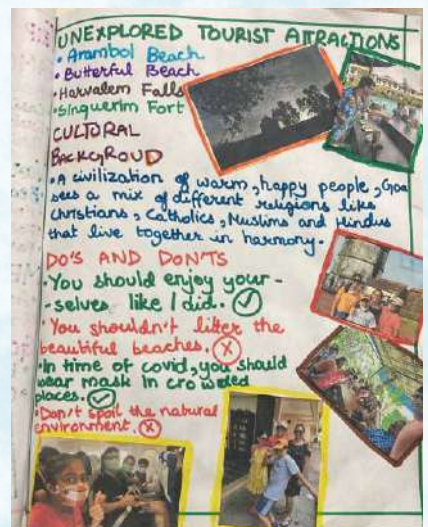 UNEXPLORED TOURIST ATTRACTIONS
• Arambol Beach
• Butterful Beach
• Harvalem Falls
• Sinquerim Fort
CULTORAL
BACKGROUD
• A civilization of warm, happy people, Goa
sees a mix of different religions like
Christians, Catholics, Muslims and Hindus
that live together in harmony.
DO'S AND DON'TS
• You should enjoy your-
-selves like I did.. ✓
• You shouldn't litter the
beautiful beaches. X
• In time of covid, you should
wear mask in crowded
places. ✓
• Don't spoil the natural
environment. X